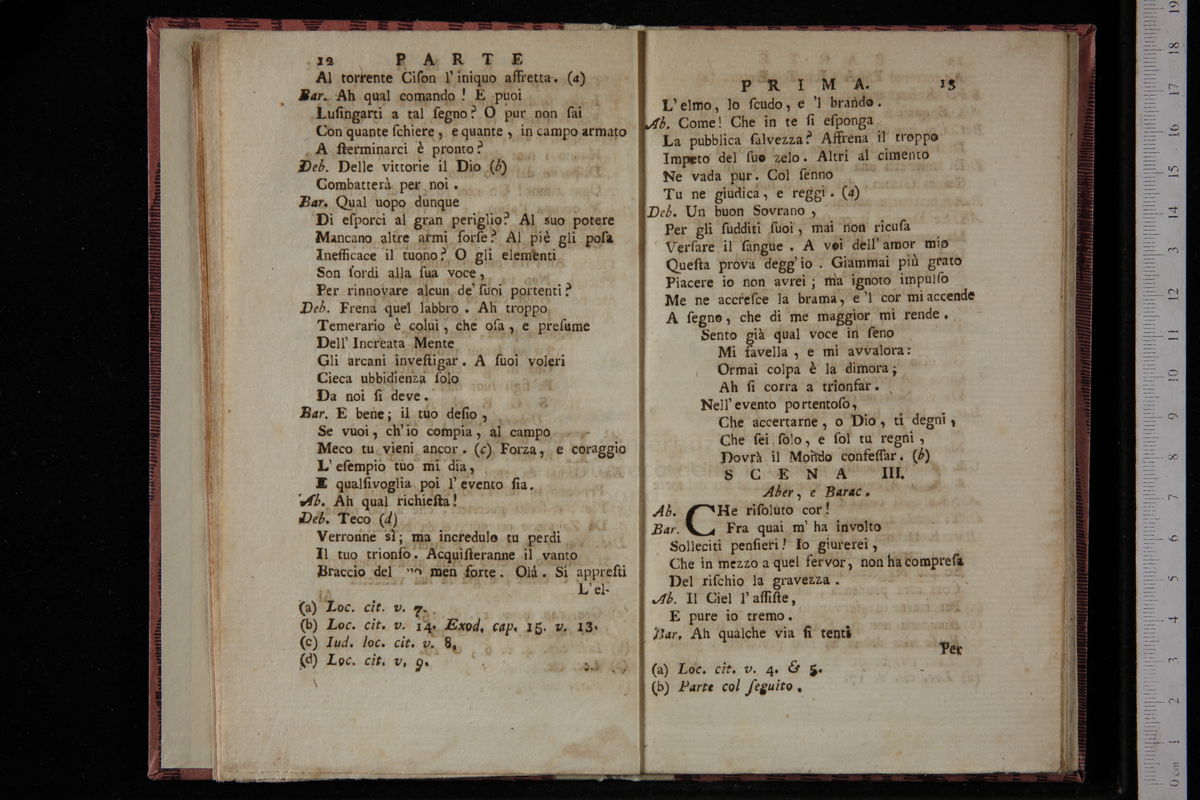 12 PARTE
Al torrente Ciſon l' iniquo affretta. (a)
Bar. Ah qual comando ! E puoi
Luſingarti a tal ſegno? O pur non ſai
Con quante ſchiere, e quante, in campo armato
A ſterminarci è pronto?
Deb. Delle vittorie il Dio (b)
Combatterà per noi.
Bar. Qual uopo dunque
Di eſporci al gran periglio? Al suo potere
Mancano altre armi forſe? Al piè gli poſa
Inefficace il tuono? O gli elementi
Son ſordi alla ſua voce,
Per rinnovare alcun de' ſuoi portenti?
Deb. Frena quel labbro. Ah troppo
Temerario è colui, che oſa, e preſume
Dell' Increata Mente
Gli arcani inveſtigar. A ſuoi voleri
Cieca ubbidienza ſolo
Da noi ſi deve.
Bar. E bene; il tuo deſio,
Se vuoi, ch'io compia, al campo
Meco tu vieni ancor. (c) Forza, e coraggio
L' eſempio tuo mi dia,
E qualſivoglia poi l' evento ſia.
Ab. Ah qual richieſta!
Deb. Teco (d)
Verronne sì; ma incredulo tu perdi
Il tuo trionfo. Acquiſteranne il vanto
Braccio del men forte. Olà. Si appreſti
L'el-
(a) Loc. cit. v. 7.
(b) Loc. cit. v. 14. Exod. cap. 15. v. 13.
(c) Iud. loc. cit. v. 8.
(d) Loc. cit. v. 9.
PRIMA. 13
L'elmo, lo ſcudo, e 'l brando.
Ab. Come! Che in te ſi eſponga
La pubblica ſalvezza? Affrena il troppo
Impeto del ſuo zelo. Altri al cimento
Ne vada pur. Col ſenno
Tu ne giudica, e reggi. (a)
Deb. Un buon Sovrano,
Per gli ſudditi ſuoi, mai non ricuſa
Verſare il ſangue. A voi dell' amor mio
Queſta prova degg' io. Giammai più grato
Piacere io non avrei; ma ignoto impulſo
Me ne accreſce la brama, e 'l cor mi accende
A ſegno, che di me maggior mi rende.
Sento già qual voce in ſeno
Mi favella, e mi avvalora:
Ormai colpa è la dimora;
Ah ſi corra a trionfar.
Nell' evento portentoſo,
Che accertarne, o Dio, ti degni,
Che ſei ſolo, e ſol tu regni,
Dovrà il Mondo confeſſar. (b)
SCENA III.
Aber, e Barac.
Ab. CHe riſoluto cor!
Bar. Fra quai m' ha involto
Solleciti penſieri! Io giurerei,
Che in mezzo a quel fervor, non ha compreſa
Del riſchio la gravezza.
Ab. Il Ciel l' aſſiſte,
E pure io tremo.
Bar. Ah qualche via ſi tenti
Per
(a) Loc. cit. v. 4. & 5.
(b) Parte col ſeguito.